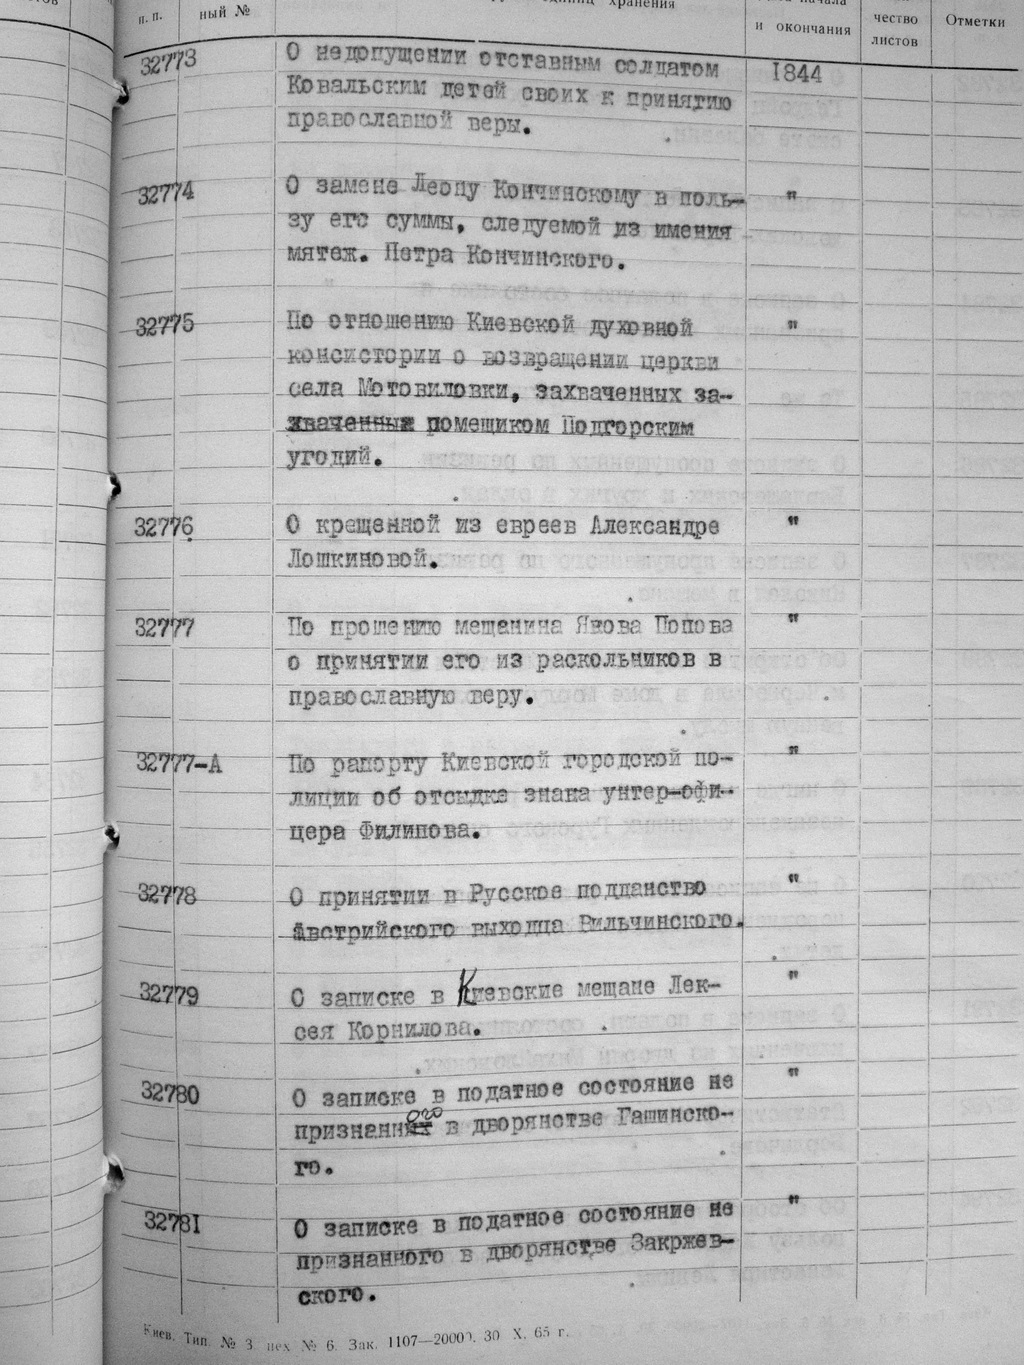 п. п.
ный №
хранения
и окончания
чество
листов
Отметки
32773
О недопущении отставным солдатом
Ковальским детей своих к принятию
православной веры.
1844
32774
О замене Леону Кончинскому в поль-
зу его суммы, следуемой из имения
мятеж. Петра Кончинского.
"
32775
По отношению Киевской духовной
консистории о возвращении церкви
села Мотовиловки, захваченных за-
хваченных помещиком Подгорским
угодий.
"
32776
О крещенной из евреев Александре
Лошкиновой.
"
32777
По прошению мещанина Якова Попова
о принятии его из раскольников в
православную веру.
"
32777-А
По рапорту Киевской городской по-
лиции об отсылке знака унтер-офи-
цера Филипова.
"
32778
О принятии в Русское подданство
Австрийского выходца Вильчинского.
"
32779
О записке в Киевские мещане Лек-
сея Корнилова.
"
32780
О записке в податное состояние не
признанного в дворянстве Гашинско-
го.
"
32781
О записке в податное состояние не
признанного в дворянстве Закржев-
ского.
"
Киев. Тип. № 3 цех № 6. Зак. 1107—20000. 30 X. 65 г.